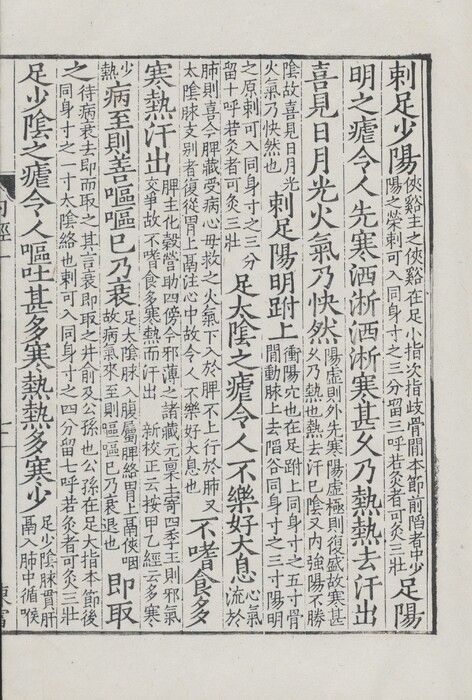 刺足少陽俠谿主之俠谿在足小指次指歧骨間本節前陷者中少陽之滎刺可入同身寸之三分留三呼若灸者可灸三壯足陽
明之瘧令人先寒洒淅洒淅寒甚久乃熱熱去汗出
喜見日月光火氣乃快然陽虛則外先寒陽虛極則復盛故寒甚久乃熱也熱去汗已陰又內強陽不勝
陰故喜見日月光火氣乃快然也刺足陽明跗上衝陽穴也在足跗上同身寸之五寸骨間動脉上去陷谷同身寸之三寸陽明
之原刺可入同身寸之三分留十呼若灸者可灸三壯足太陰之瘧令人不樂好大息心氣流於
肺則喜令脾藏受病心母救之火氣下入於脾不上行於肺又太陰脉支別者復從胃上鬲注心中故令人不樂好大息也不嗜食多
寒熱汗出脾主化穀營助四傍今邪薄之諸藏元稟土寄四季王則邪氣交爭故不嗜食多寒熱而汗出 新校正云按甲乙經云多寒
少熱病至則善嘔嘔已乃衰足太陰脉入腹屬脾絡胃上鬲俠咽故病氣來至則嘔嘔已乃衰退也即取
之待病衰去即而取之其言衰即取之井俞及公孫也公孫在足大指本節後同身寸之一寸太陰絡也刺可入同身寸之四分留七呼若灸者可灸三壯
足少陰之瘧令人嘔吐甚多寒熱熱多寒少足少陰脉貫肝鬲入肺中循喉